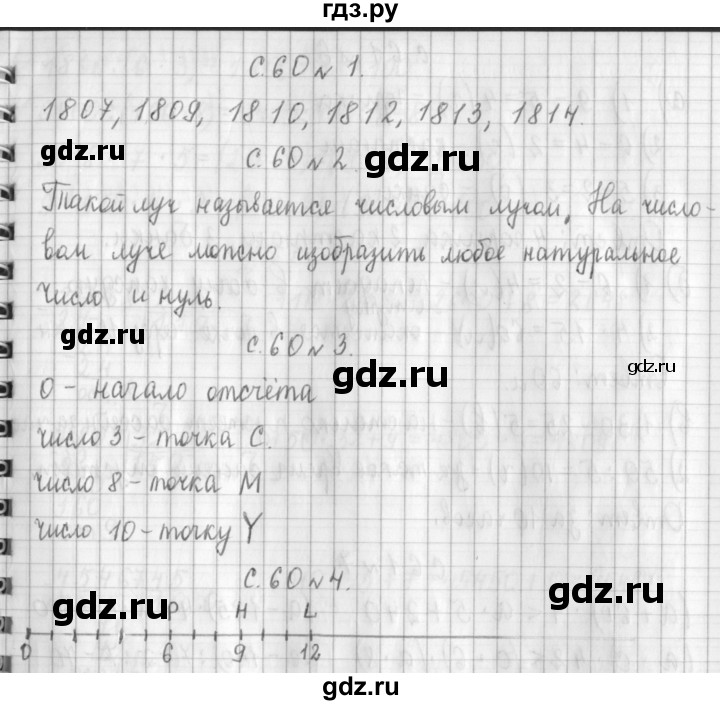 гдз.ру
с. 60 № 1.
1807, 1809, 1810, 1812, 1813, 1814.
gdz.ru
с. 60 № 2.
gdz.ru
Такой луч называется числовым лучом. На число-
вом луче можно изобразить любое натуральное
число и нуль.
gdz.ru
с. 60 № 3.
gdz.ru
gdz.ru
0 - начало отсчёта
число 3 - точка С.
число 8 - точка М
число 10 - точку Y
с. 60 № 4.
gdz.ru
gdz.ru
P H L
0 6 9 12
gdz.ru